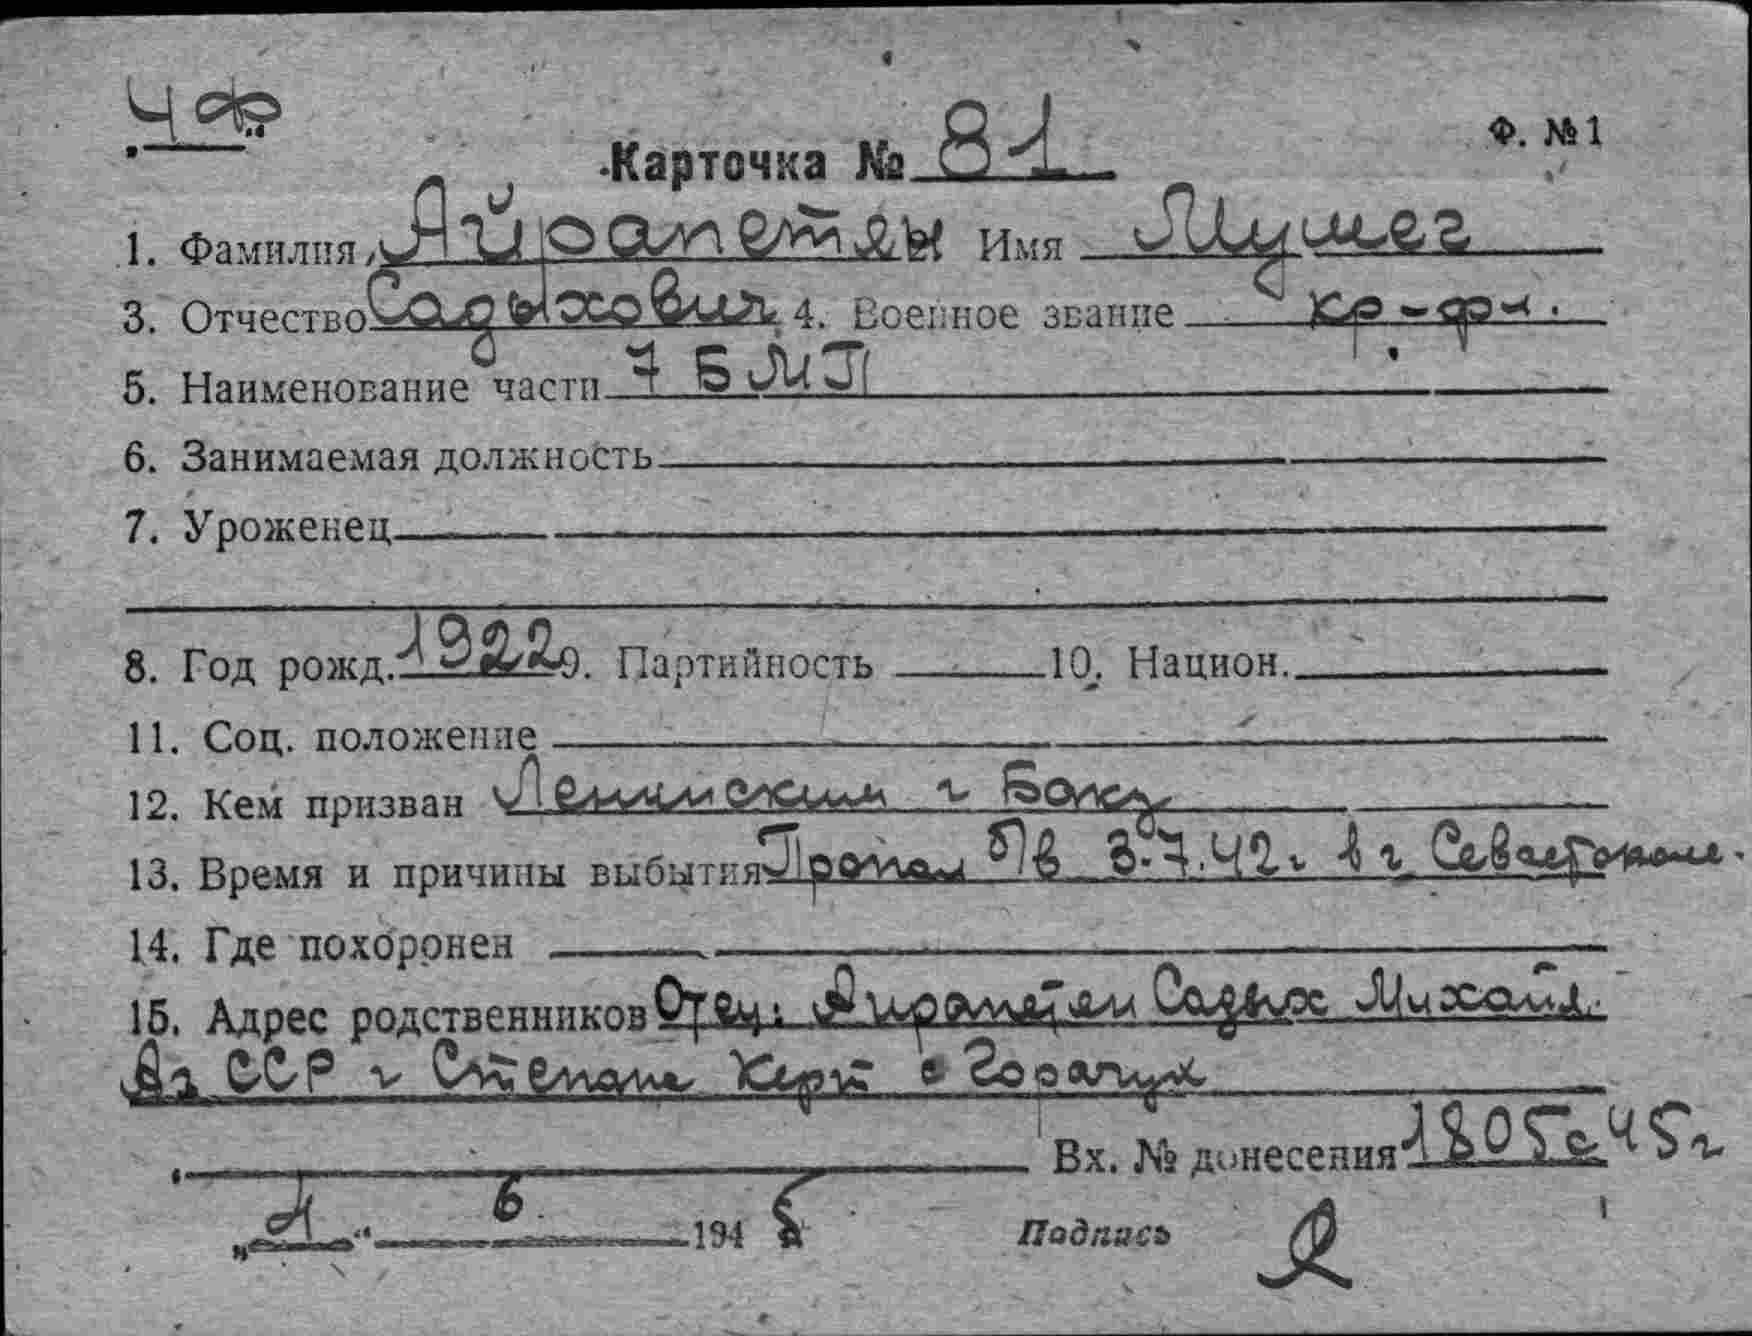 ЧФ
Карточка № 81
Ф. № 1
1. Фамилия Айрапетян Имя Мушег
3. Отчество Садыхович 4. Военное звание кр-фл.
5. Наименование части 7 БМП
6. Занимаемая должность
7. Уроженец
8. Год рожд. 1922 9. Партийность 10. Национ.
11. Соц. положение
12. Кем призван Ленинским г Баку
13. Время и причины выбытия Пропал б/в 3.7.42г в г Севастополе.
14. Где похоронен
15. Адрес родственников Отец: Айрапетян Садых Михайл.
Аз ССР г Степана Керт с
Вх. № донесения 1805с 45г
194 5 Подпись